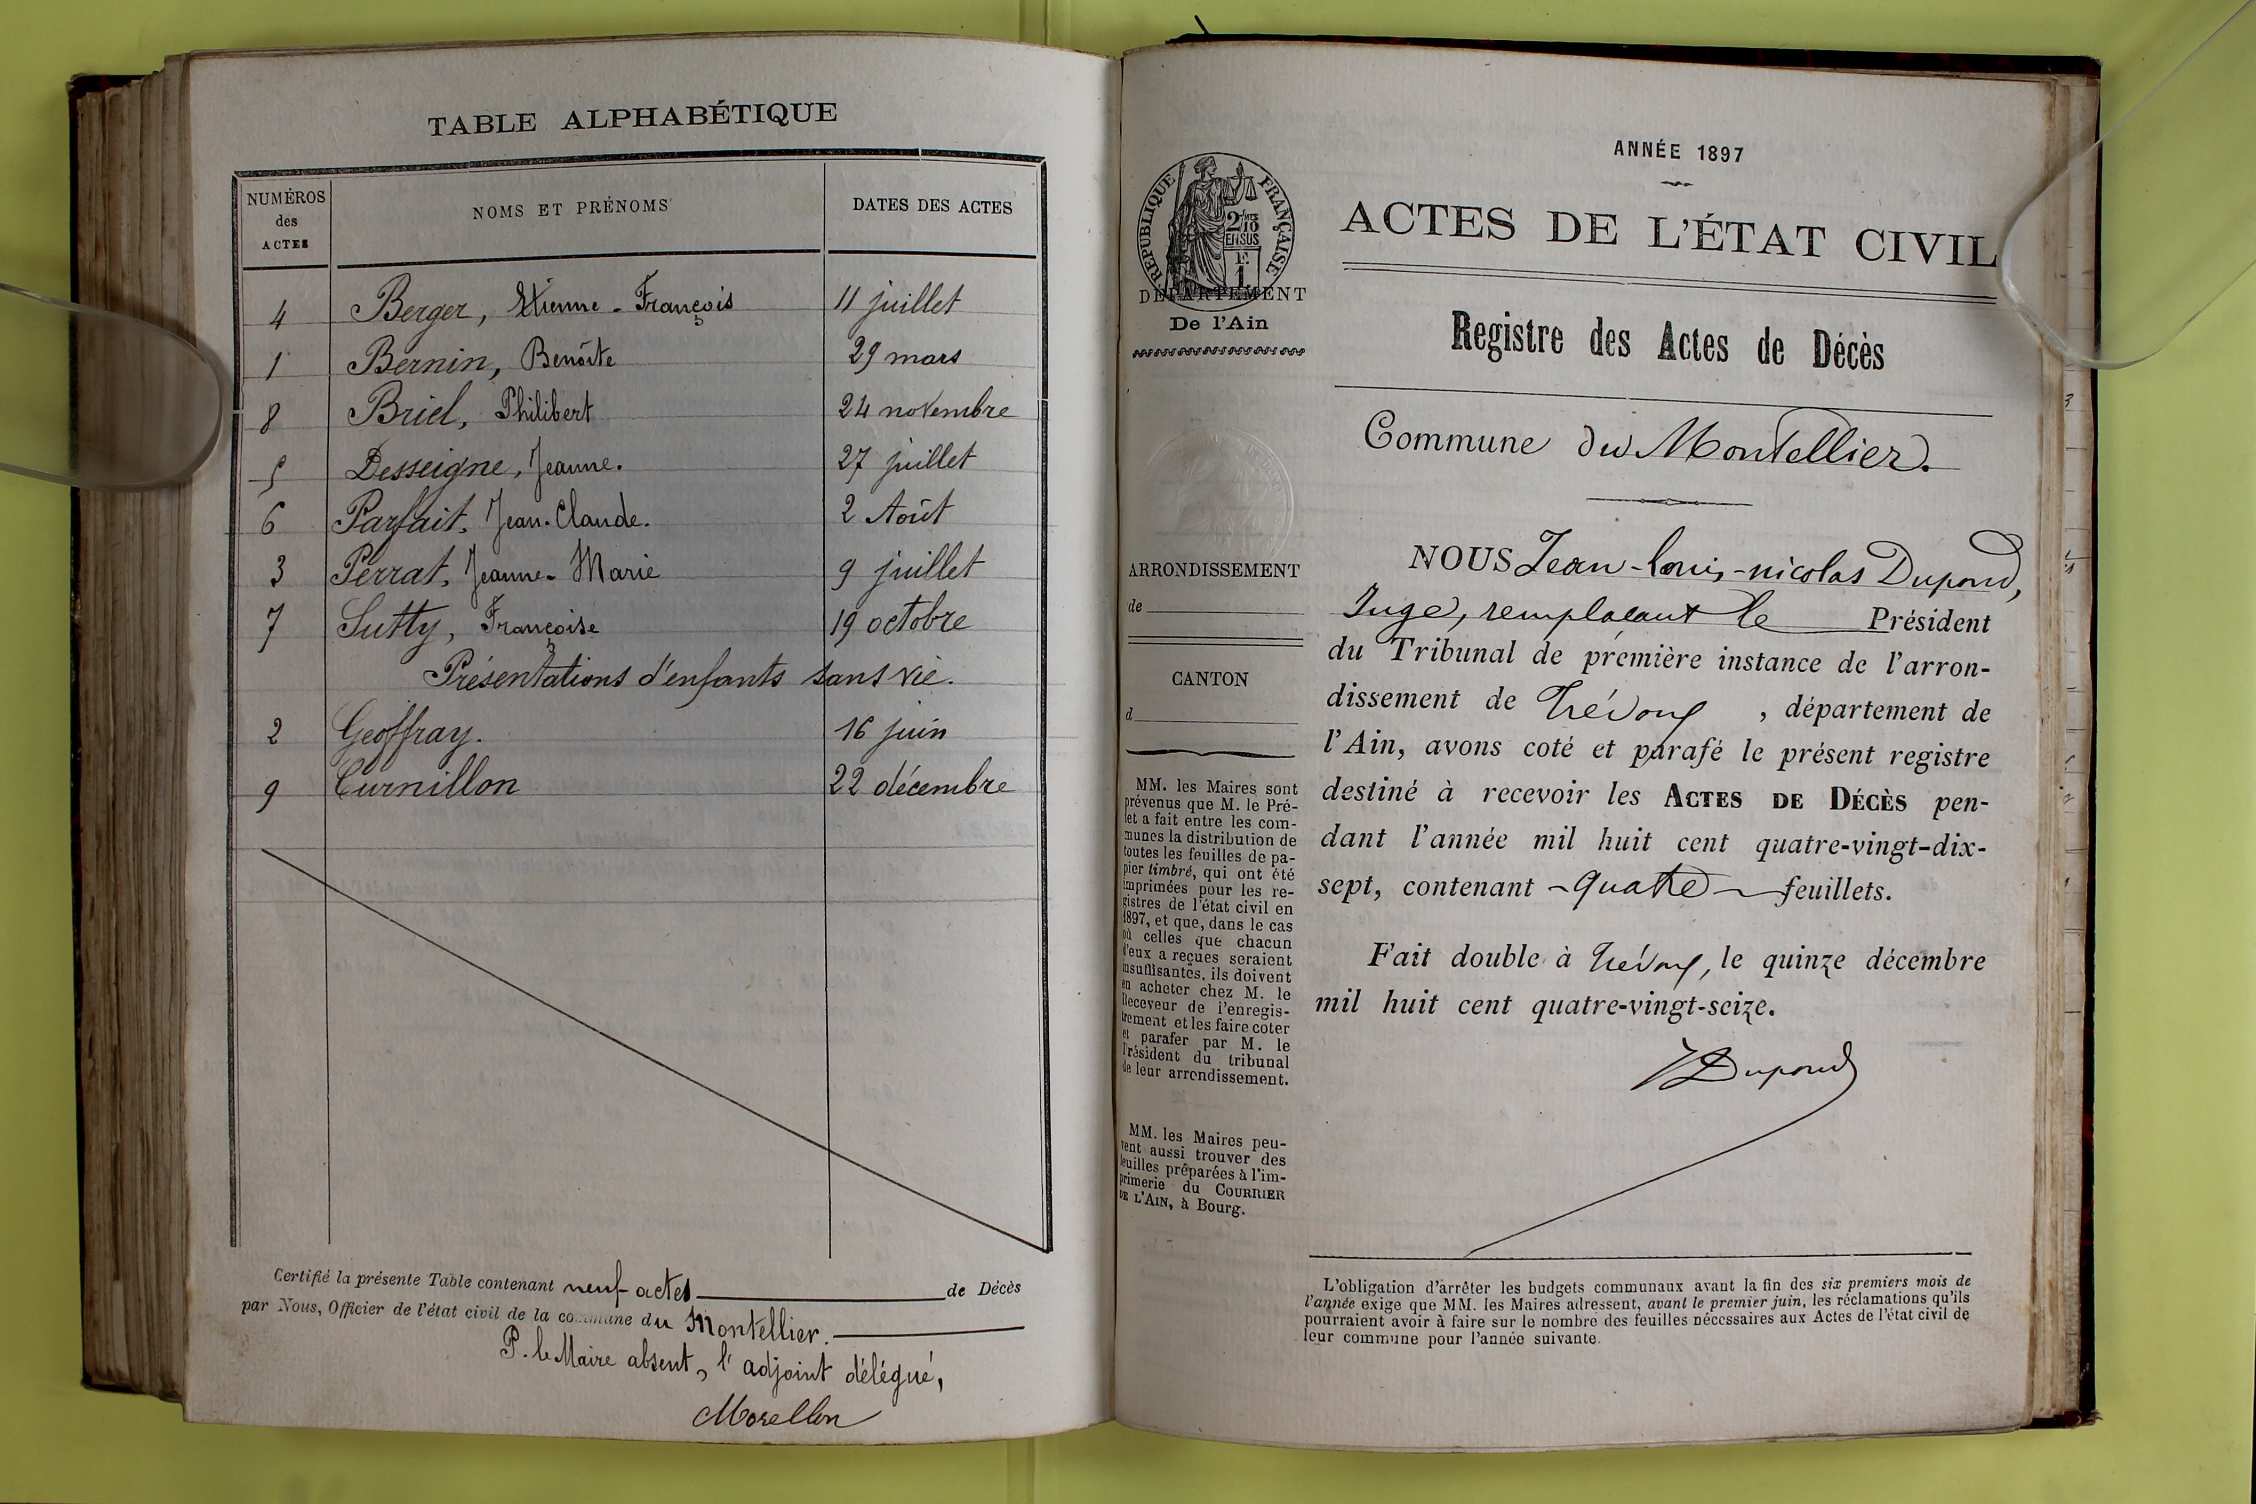 TABLE ALPHABÉTIQUE
NUMÉROS des ACTES NOMS ET PRÉNOMS DATES DES ACTES
4 Berger, Etienne-François 11 juillet
1 Bernin, Benoîte 29 mars
8 Briel, Philibert 24 novembre
5 Desseigne, Jeanne. 27 juillet
6 Parfait, Jean-Claude. 2 Août
3 Perrat, Jeanne-Marie 9 juillet
7 Sutty, Françoise 19 octobre
Présentations d'enfants sans vie.
2 Geoffray. 16 juin
9 Curnillon 22 décembre
Certifié la présente Table contenant neuf actes de Décès
par Nous, Officier de l'état civil de la commune du Montellier.
P. le Maire absent, l'adjoint délégué,
Morellon
RÉPUBLIQUE FRANÇAISE
2/10
EN SUS
1 F.
DÉPARTEMENT
De l'Ain
ARRONDISSEMENT
de
CANTON
d
MM. les Maires sont
prévenus que M. le Pré-
fet a fait entre les com-
munes la distribution de
toutes les feuilles de pa-
pier timbré, qui ont été
imprimées pour les re-
gistres de l'état civil en
1897, et que, dans le cas
où celles que chacun
d'eux a reçues seraient
insuffisantes, ils doivent
en acheter chez M. le
Receveur de l'enregis-
trement et les faire coter
et parafer par M. le
Président du tribunal
de leur arrondissement.
MM. les Maires peu-
vent aussi trouver des
feuilles préparées à l'im-
primerie du COURRIER
DE L'AIN, à Bourg.
ANNÉE 1897
ACTES DE L'ÉTAT CIVIL
Registre des Actes de Décès
Commune du Montellier.
NOUS Jean-Louis-nicolas Dupond,
Juge, remplaçant le Président
du Tribunal de première instance de l'arron-
dissement de Trévoux, département de
l'Ain, avons coté et parafé le présent registre
destiné à recevoir les ACTES DE DÉCÈS pen-
dant l'année mil huit cent quatre-vingt-dix-
sept, contenant - quatre - feuillets.
Fait double à Trévoux, le quinze décembre
mil huit cent quatre-vingt-seize.
Dupond
L'obligation d'arrêter les budgets communaux avant la fin des six premiers mois de
l'année exige que MM. les Maires adressent, avant le premier juin, les réclamations qu'ils
pourraient avoir à faire sur le nombre des feuilles nécessaires aux Actes de l'état civil de
leur commune pour l'année suivante.